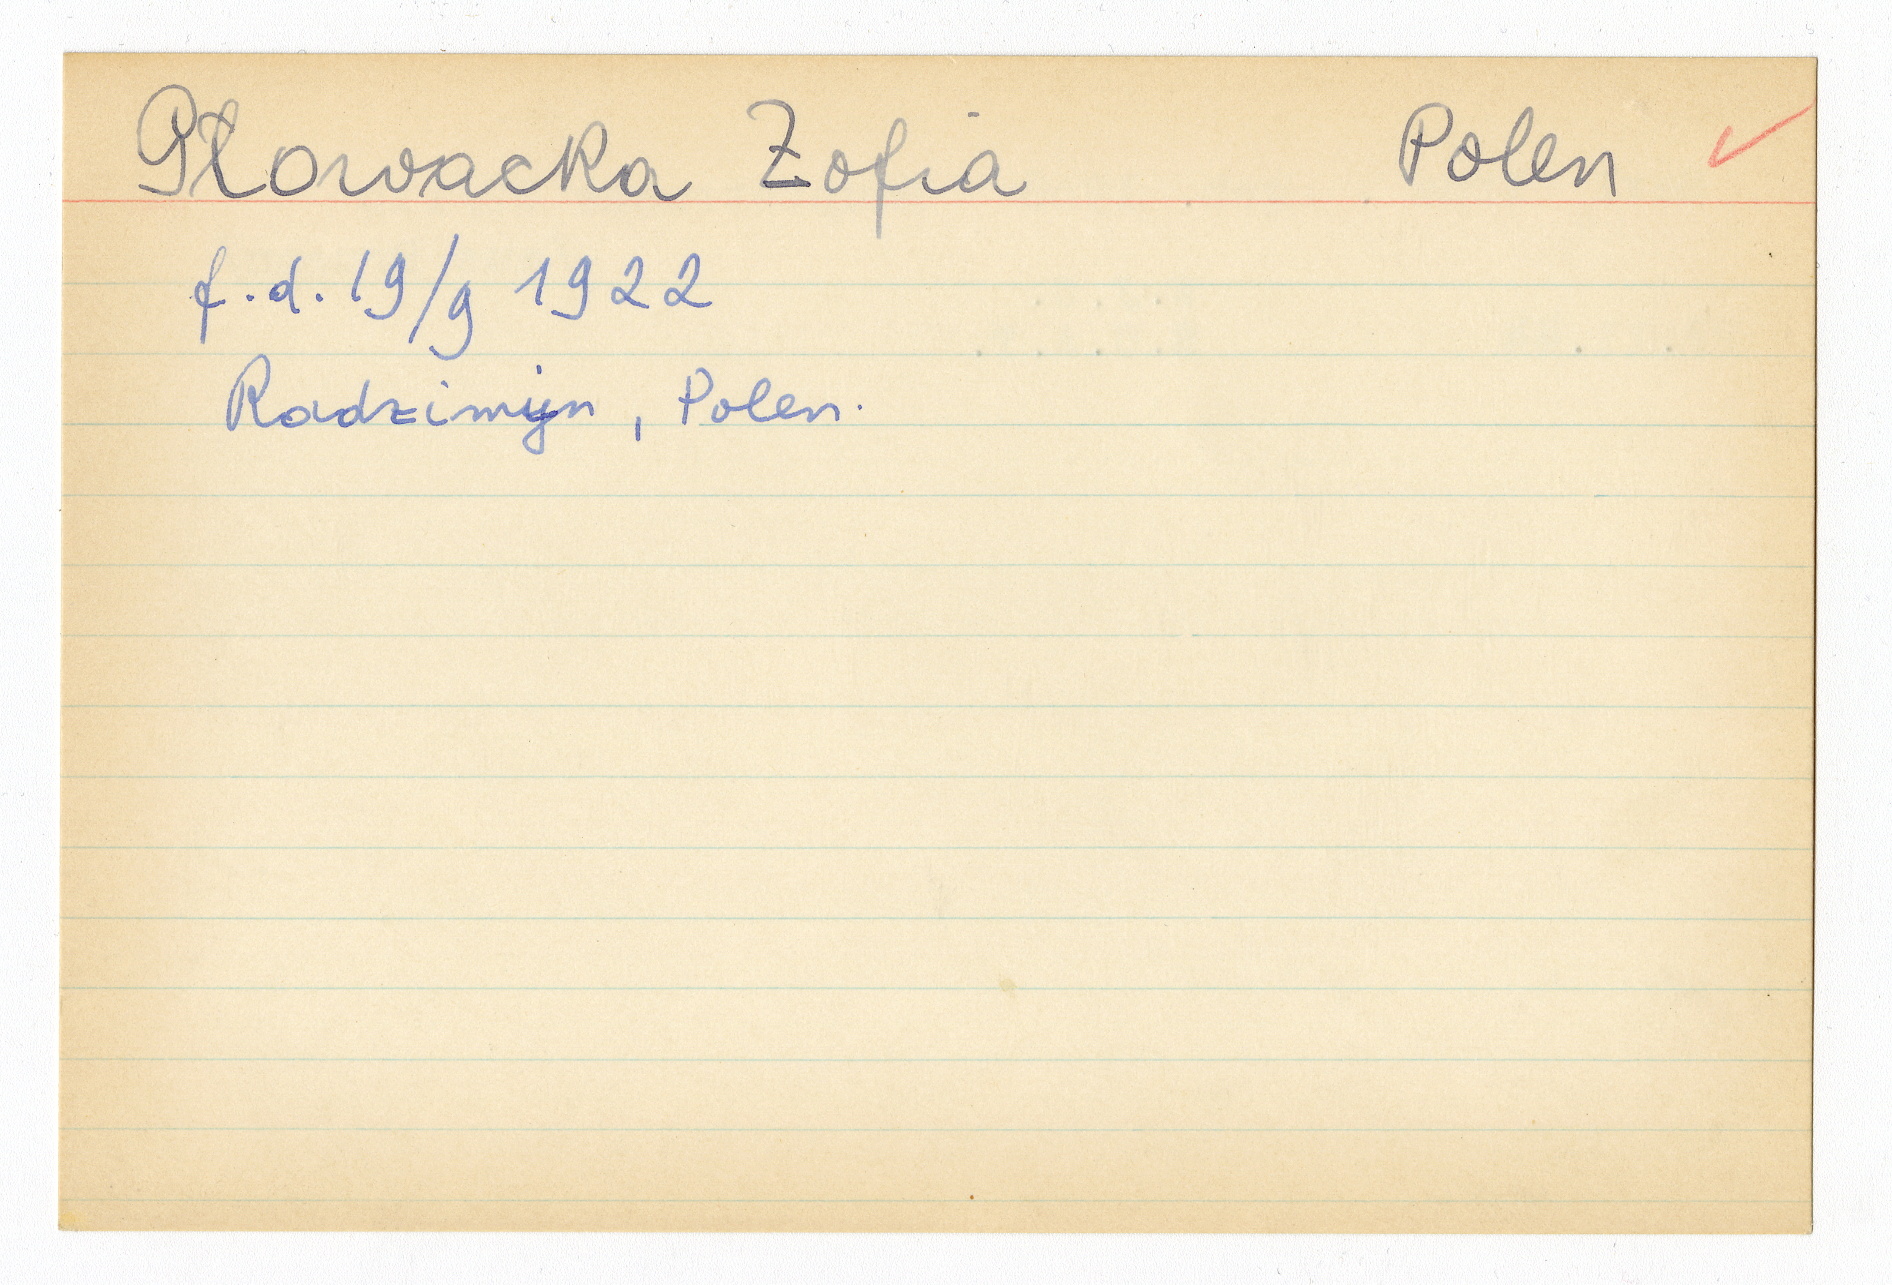 Głowacka Zofia Polen ✓
f.d. 19/9 1922
Radzimijn, Polen.